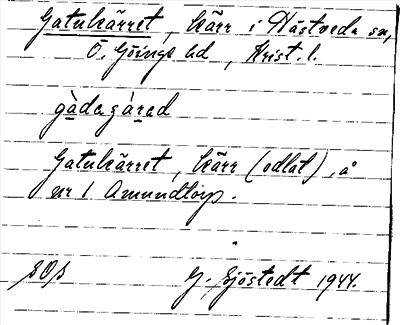 Gatukärret, kärr i Hästveda sn,
Ö. Göinge hd, Krist. l.
gàdagàrad
Gatukärret, kärr (odlat), å
nr 1 Amundtorp.
G. Sjöstedt 1944.